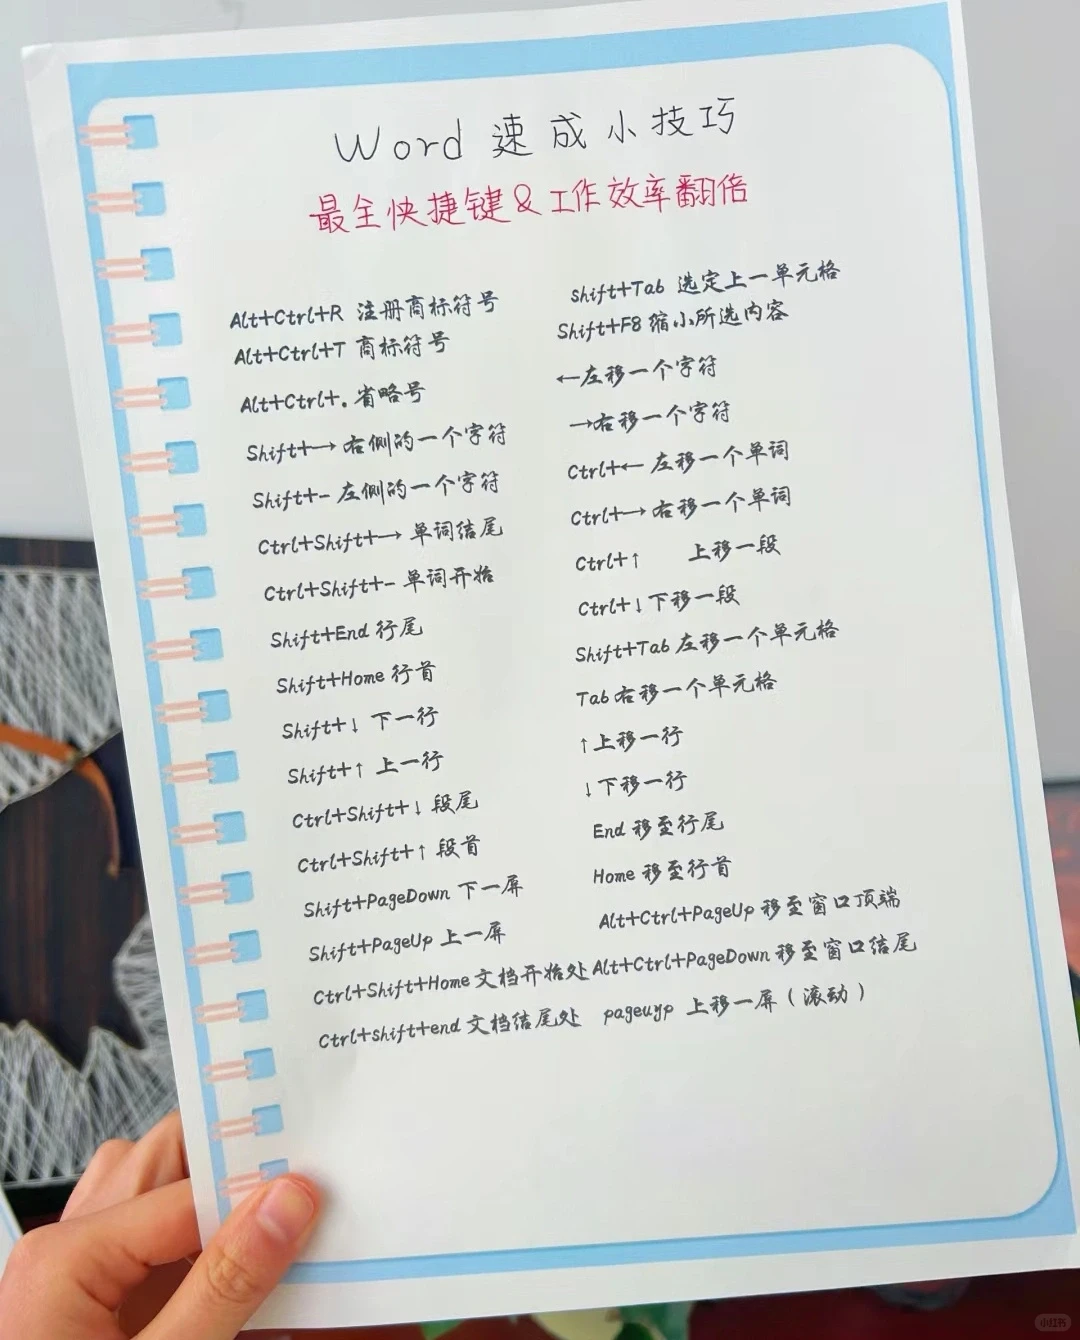 Word 速成小技巧
最全快捷键&工作效率翻倍
Alt+Ctrl+R 注册商标符号
Alt+Ctrl+T 商标符号
Alt+Ctrl+. 省略号
Shift+→ 右侧的一个字符
Shift+- 左侧的一个字符
Ctrl+Shift+→ 单词结尾
Ctrl+Shift+- 单词开始
Shift+End 行尾
Shift+Home 行首
Shift+↓ 下一行
Shift+↑ 上一行
Ctrl+Shift+↓ 段尾
Ctrl+Shift+↑ 段首
Shift+PageDown 下一屏
Shift+PageUp 上一屏
Ctrl+Shift+Home 文档开始处
Ctrl+Shift+end 文档结尾处
Shift+Tab 选定上一单元格
Shift+F8 缩小所选内容
←左移一个字符
→右移一个字符
Ctrl+← 左移一个单词
Ctrl+→ 右移一个单词
Ctrl+↑ 上移一段
Ctrl+↓ 下移一段
Shift+Tab 左移一个单元格
Tab 右移一个单元格
↑上移一行
↓下移一行
End 移至行尾
Home 移至行首
Alt+Ctrl+PageUp 移至窗口顶端
Alt+Ctrl+PageDown 移至窗口结尾
pageuyp 上移一屏（滚动）
小红书